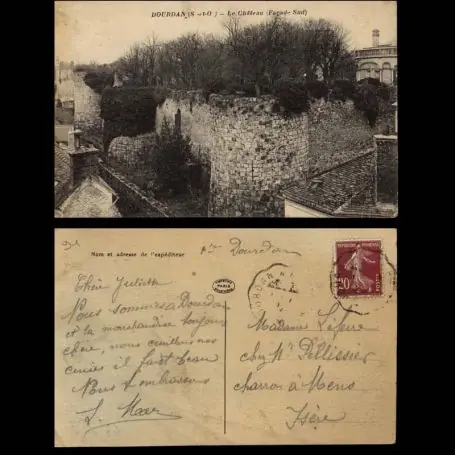 DOURDAN (S-et-O) — Le Château (Façade Sud)
Nom et adresse de l'expéditeur
Dourdan
Chère Juliette
Nous sommes à Dourdan
et la marchandise toujours
chère, nous
il fait beau
Nous t'embrassons
L.
PARIS
REPUBLIQUE FRANÇAISE
20
POSTES
DOURDAN
Madame
chez Mr Pellissier
charron à Mens
Isère